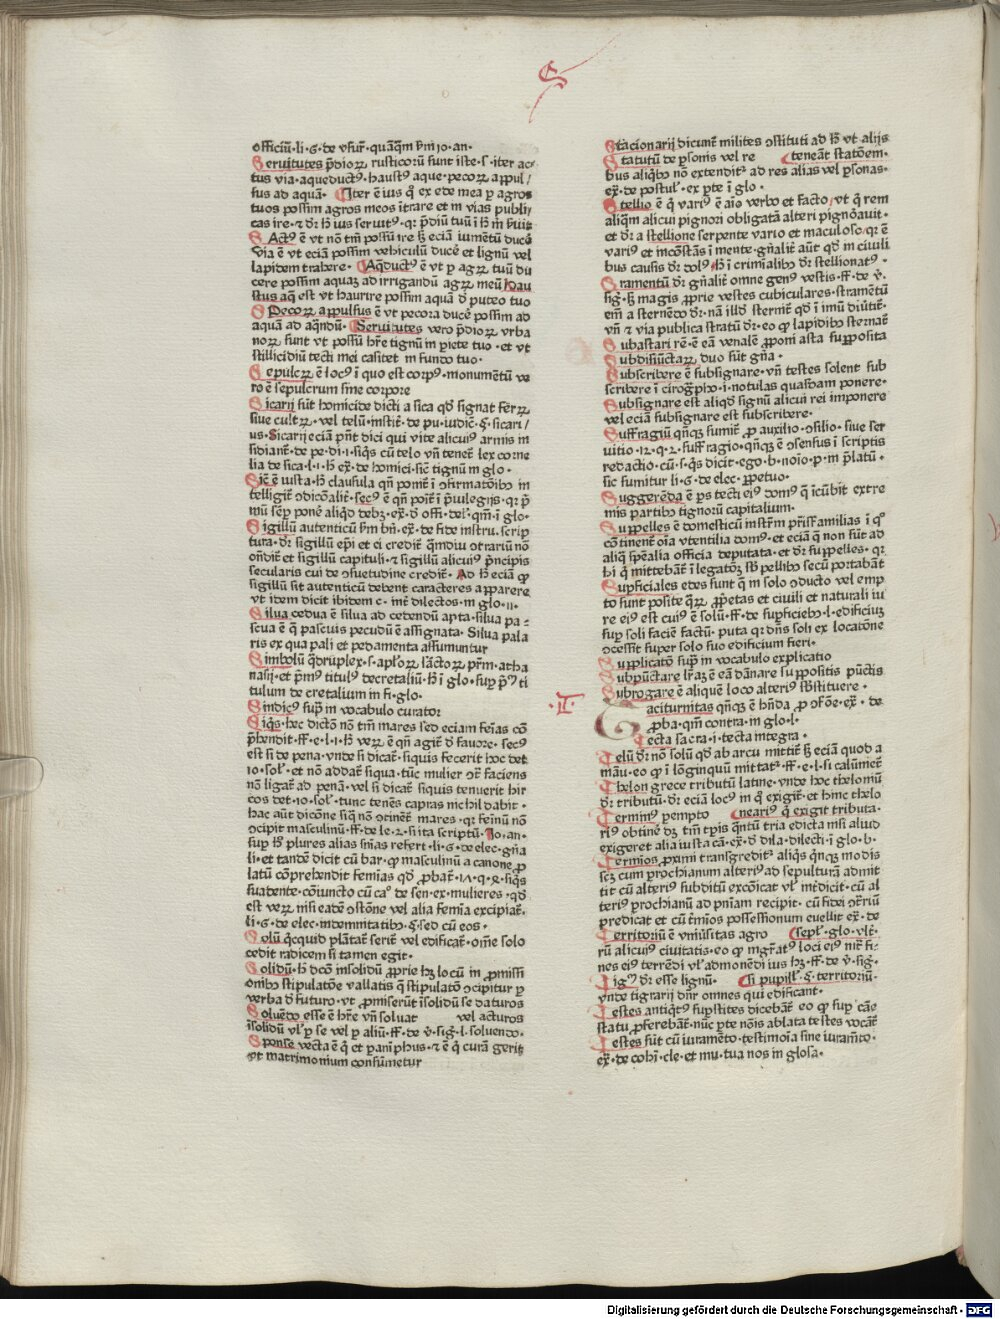 S
officiū·li·6·de vsur̄·quāqm̄ ꝑm Jo·an·
Seruitutes p̄dioꝝ rusticorū sunt iste·s·iter ac⸗
tus via·aqueductꝰ·haustꝰ aque·pecoꝝ appul/
sus ad aquā· Iter ē ius qͦ ex ede mea ꝑ agros
tuos possim agros meos ītrare et in vias publi
cas ire·⁊ dr̄ hͦ ius seruitꝰ·qr p̄diū tuū ī hͦ m̄ ẜuit
Actꝰ ē vt nō tm̄ possū ire sꝫ eciā iumētū ducē
via ē vt eciā possim vehiculū ducē et lignū vel
lapidem trahere· Aq̄ductꝰ ē vt ꝑ agꝝ tuū du
cere possim aquaꝫ ad irrigandū agꝝ meū hau
stus aq̄ est vt haurire possim aquā d̄ puteo tuo
Pecoꝝ appulsus ē vt pecora ducē possim ad
aquā ad aq̄ndū· Seruitutes vero p̄dioꝝ vrba
noꝝ sunt vt possū hr̄e tignū in ꝑiete tuo·et vt
stillicidiū tecti mei casitet in fundo tuo·
Sepulcꝝ ē locꝰ ī quo est corpꝰ·monumētū ve
ro ē sepulcrum sine corpore
Sicarij sūt homicide dicti a sica qd̄ signat ferꝝ
siue cultꝝ·vel telū·instit̄·de pu·iudic̄·§·sicari/
us·Sicarij eciā pn̄t dici qui vite alicuiꝰ armis in
sidiant̄·de pe·di·1·siq̄s cū telo vn̄ tenet̄ lex corne
lia de sica·l·1·hͦ ex̄·de homici·sic̄ tignū in glo·
Sic̄ ē iusta·hͦ clausula qn̄ ponit̄ ī ꝯfirmatōibꝫ in
telligit̄ ꝯdicōalit̄·secꝰ ē qn̄ poit̄ ī p̄uilegijs·qr p̄
mū semꝑ ponē aliqd̄ debꝫ·ex̄·d̄ offi·del·qm̄·ī glo·
Sigillū autenticū ẜm bn̄·ex̄·de fide instru·scrip
tura·dr̄ sigillū ep̄i et ei credit̄ qͣmdiu ꝯtrariū nō
on̄dit̄ et sigillū capituli·⁊ sigillū alicuiꝰ p̄ncipis
secularis cui de ꝯsuetudine credit̄· Ad hͦ eciā qͥ
sigillū sit autenticū debent caracteres apparere
vt idem dicit ibidem c·int̄ dilectos·in glo·11·
Silua cedua ē silua ad cedendū apta·silua pa⸗
scua ē q̄ pascuis pecudū ē assignata· Silua pala
ris ex qua pali et pedamenta assumuntur
Simbolū qͣdruplex·s·apl̄oꝝ sāctoꝝ pr̄m·atha
nasij·et pͥmꝰ titulꝰ decretaliū·hͦ ī glo·suꝑ pͦ ti
tulum de cretalium in fi·glo·
Sindicꝰ supͣ in vocabulo curator
Siq̄s·hec dictō nō tm̄ mares sed eciam feīas cō
p̄hendit·ff·e·l·1·hͦ veꝝ ē qn̄ agit̄ d̄ fauore·secꝰ
est si de pena·vnde si dicat̄ siquis fecerit hoc det
10·sol·et nō addat̄ siqua·tūc mulier ꝯt̄ faciens
nō ligat̄ ad penā·vel si dicat̄ siquis tenuerit hir
cos det·10·sol·tunc tenēs capras nichil dabit·
hac aūt dicōne siq̄ nō ꝯtinēt̄ mares·qr feīnū nō
ꝯcipit masculinū·ff·de le·2·si ita scriptū·Jo·an·
suꝑ hͦ plures alias sn̄ias refert·li·6·de elec·gn̄a
li·et tandē dicit cū bar·qͥ masculinū a canone ꝓ
latū cōprehendit femīas qd̄ ꝓbat̄·17·q·2·siq̄s
suadente·cōiuncto cū caͦ de sen·ex·mulieres·qd̄
est veꝝ nisi eadē ꝯstōne vel alia femīa excipiat̄·
li·6·de elec·indemnitatibꝫ·§·sed cū eos·
Solū q̄cquid plātat̄ serit̄ vel edificat̄·oīne solo
cedit radicem si tamen egit·
Solidū·hͦ dcōm insolidū ꝓprie hꝫ locū in ꝓmissi
onibꝫ stipulatōne vallatis q̄ stipulatō ꝯcipitur ꝑ
verba d̄ futuro·vt ꝓmiserūt īsolidū se daturos
Soluēdo esse ē hr̄e vn̄ soluat vel acturos
īsolidū vlͥ ꝑ se vel ꝑ aliū·ff·de v̄·sig·l·soluendo·
Sponse vecta ē q̄ et ꝑaniphus·⁊ ē q̄ curā gerit
vt matrimonium consūmetur
Stacionarij dicunt̄ milites ꝯstituti ad hͦ vt alijs
Statutū de ꝑsonis vel re teneāt statōem·
bus aliqͥbꝫ nō extendit̄ ad res alias vel ꝑsonas·
ex̄·de postul·ex ꝑte ī glo·
Stellio ē q̄ variꝰ ē aīo verbo et facto/vt q̄ rem
aliqͣm alicui pignori obligatā alteri pignōauit·
et dr̄ a stellione serpente vario et maculoso/qr ē
variꝰ et incōstās ī mente·gn̄alit̄ aūt qd̄ in ciuili
bus causis dr̄ dolꝰ·hͦ ī crimīalibꝫ dr̄ stellionatꝰ·
Stramentū dr̄ gn̄alit̄ omne genꝰ vestis·ff·de v̄·
sig·sꝫ magis ꝓprie vestes cubiculares·stramētū
em̄ a sternēdo dr̄·nā illd̄ sternit̄ qd̄ ī imū diūtit̄·
vn̄ ⁊ via publica stratū dr̄·eo qͥ lapidibꝫ sternat̄
Subastari rē·ē eā venalē ꝓponi asta supposita
Subdisiūctaꝝ duo sūt gn̄a·
Subscribere ē subsignare·vn̄ testes solent sub
scribere ī cirogͣpho·i·notulas quasdam ponere·
Subsignare est aliqd̄ signū alicui rei imponere
vel eciā subsignare est subscribere·
Suffragiū qn̄qꝫ sumit̄ ꝓ auxilio·ꝯsilio·siue ser
uitio·12·q·2·suffragio·qn̄qꝫ ē ꝯsensus ī scriptis
redactio·cū·s·q̄s dicit·ego·b·noīo·ꝑ·in p̄latū·
sic sumitur li·6·de elec·ꝑpetuo·
Suggerēda ē ꝑs tecti eiꝰ domꝰ q̄ īcūbit extre
mis partibꝫ tignorū capitalium·
Suppelles ē domesticū instr̄m pr̄isfamilias ī qͦ
cōtinent̄ oīa vtentilia domꝰ·et eciā q̄ non sūt ad
aliq̄ sp̄ealia officia deputata·et dr̄ suppelles·qr
hi q̄ mittebāt̄ ī legatōeꝫ sb̄ pellibꝫ secū portabāt
Suꝑficiales edes sunt q̄ in solo ꝯducto vel emp
to sunt posite qͣꝝ ꝓpͥetas et ciuili et naturali iu
re eiꝰ est cuiꝰ ē solū·ff·de suꝑficiebꝫ·l·edificiuꝫ
suꝑ soli faciē factū·puta qr dn̄s soli ex locatōne
ꝯcessit super solo suo edificium fieri·
Supplicatō supͣ in vocabulo explicatio
Subpūctare lr̄aꝫ ē eā dānare suppositis pūctis
Subrogare ē aliquē loco alteriꝰ sb̄stituere·
·T·
Taciturnitas qn̄qꝫ ē hn̄da ꝓ ꝯfōe·ex̄·de
ꝓba·qm̄ contra·in glo·l·
Tecta sacra·i·tecta integra·
Telū dr̄ nō solū qd̄ ab arcu mittit̄ sꝫ eciā quod a
manu·eo qͥ ī lōginquū mittat̄·ff·e·l·si calūniet̄
Thelon grece tributū latine·vnde hoc theloniū
dr̄ tributū·dr̄ eciā locꝰ in qͦ exigit̄·et hinc thelo
Terminꝰ perempto nearius q̄ exigit tributa·
riꝰ obtinē dꝫ tm̄ tp̄is qͣntū tria edicta nisi aliud
exigeret alia iusta cā·ex̄·d̄ dila·dilecti·ī glo·b·
Termīos ꝓximi transgredit̄ aliq̄s qn̄qꝫ modis
scꝫ cum prochianum alteriꝰ ad sepulturā admit
tit cū alteriꝰ subditū excōicat vlͥ int̄dicit·cū al
teriꝰ prochianū ad pn̄iam recipit·cū fidei ꝯt̄riū
predicat et cū tm̄ios possessionum euellit ex̄·de
Territoriū ē vniūsitas agro sepl̄·glo·vlt̄·
rū alicuiꝰ ciuitatis·eo qͥ mgr̄atꝰ loci eiꝰ intr̄ fi⸗
nes eiꝰ terrēdi vlͥ admonēdi ius hꝫ·ff·de v̄·sig·
Tigͫ dr̄ esse lignū· si pupill·§·territoriū·
vnde tigrarij dn̄r omnes qui edificant·
Testes antiqͥtꝰ suꝑstites dicebāt̄ eo qͥ suꝑ cāe
statu ꝓferebāt̄·nūc ꝑte nōis ablata testes vocāt̄
Testes sūt cū iuramēto·testimoīa sine iuram̄to·
ex̄·de cohī·cle·et mu·tua nos in glosa·
Digitalisierung gefördert durch die Deutsche Forschungsgemeinschaft - DFG